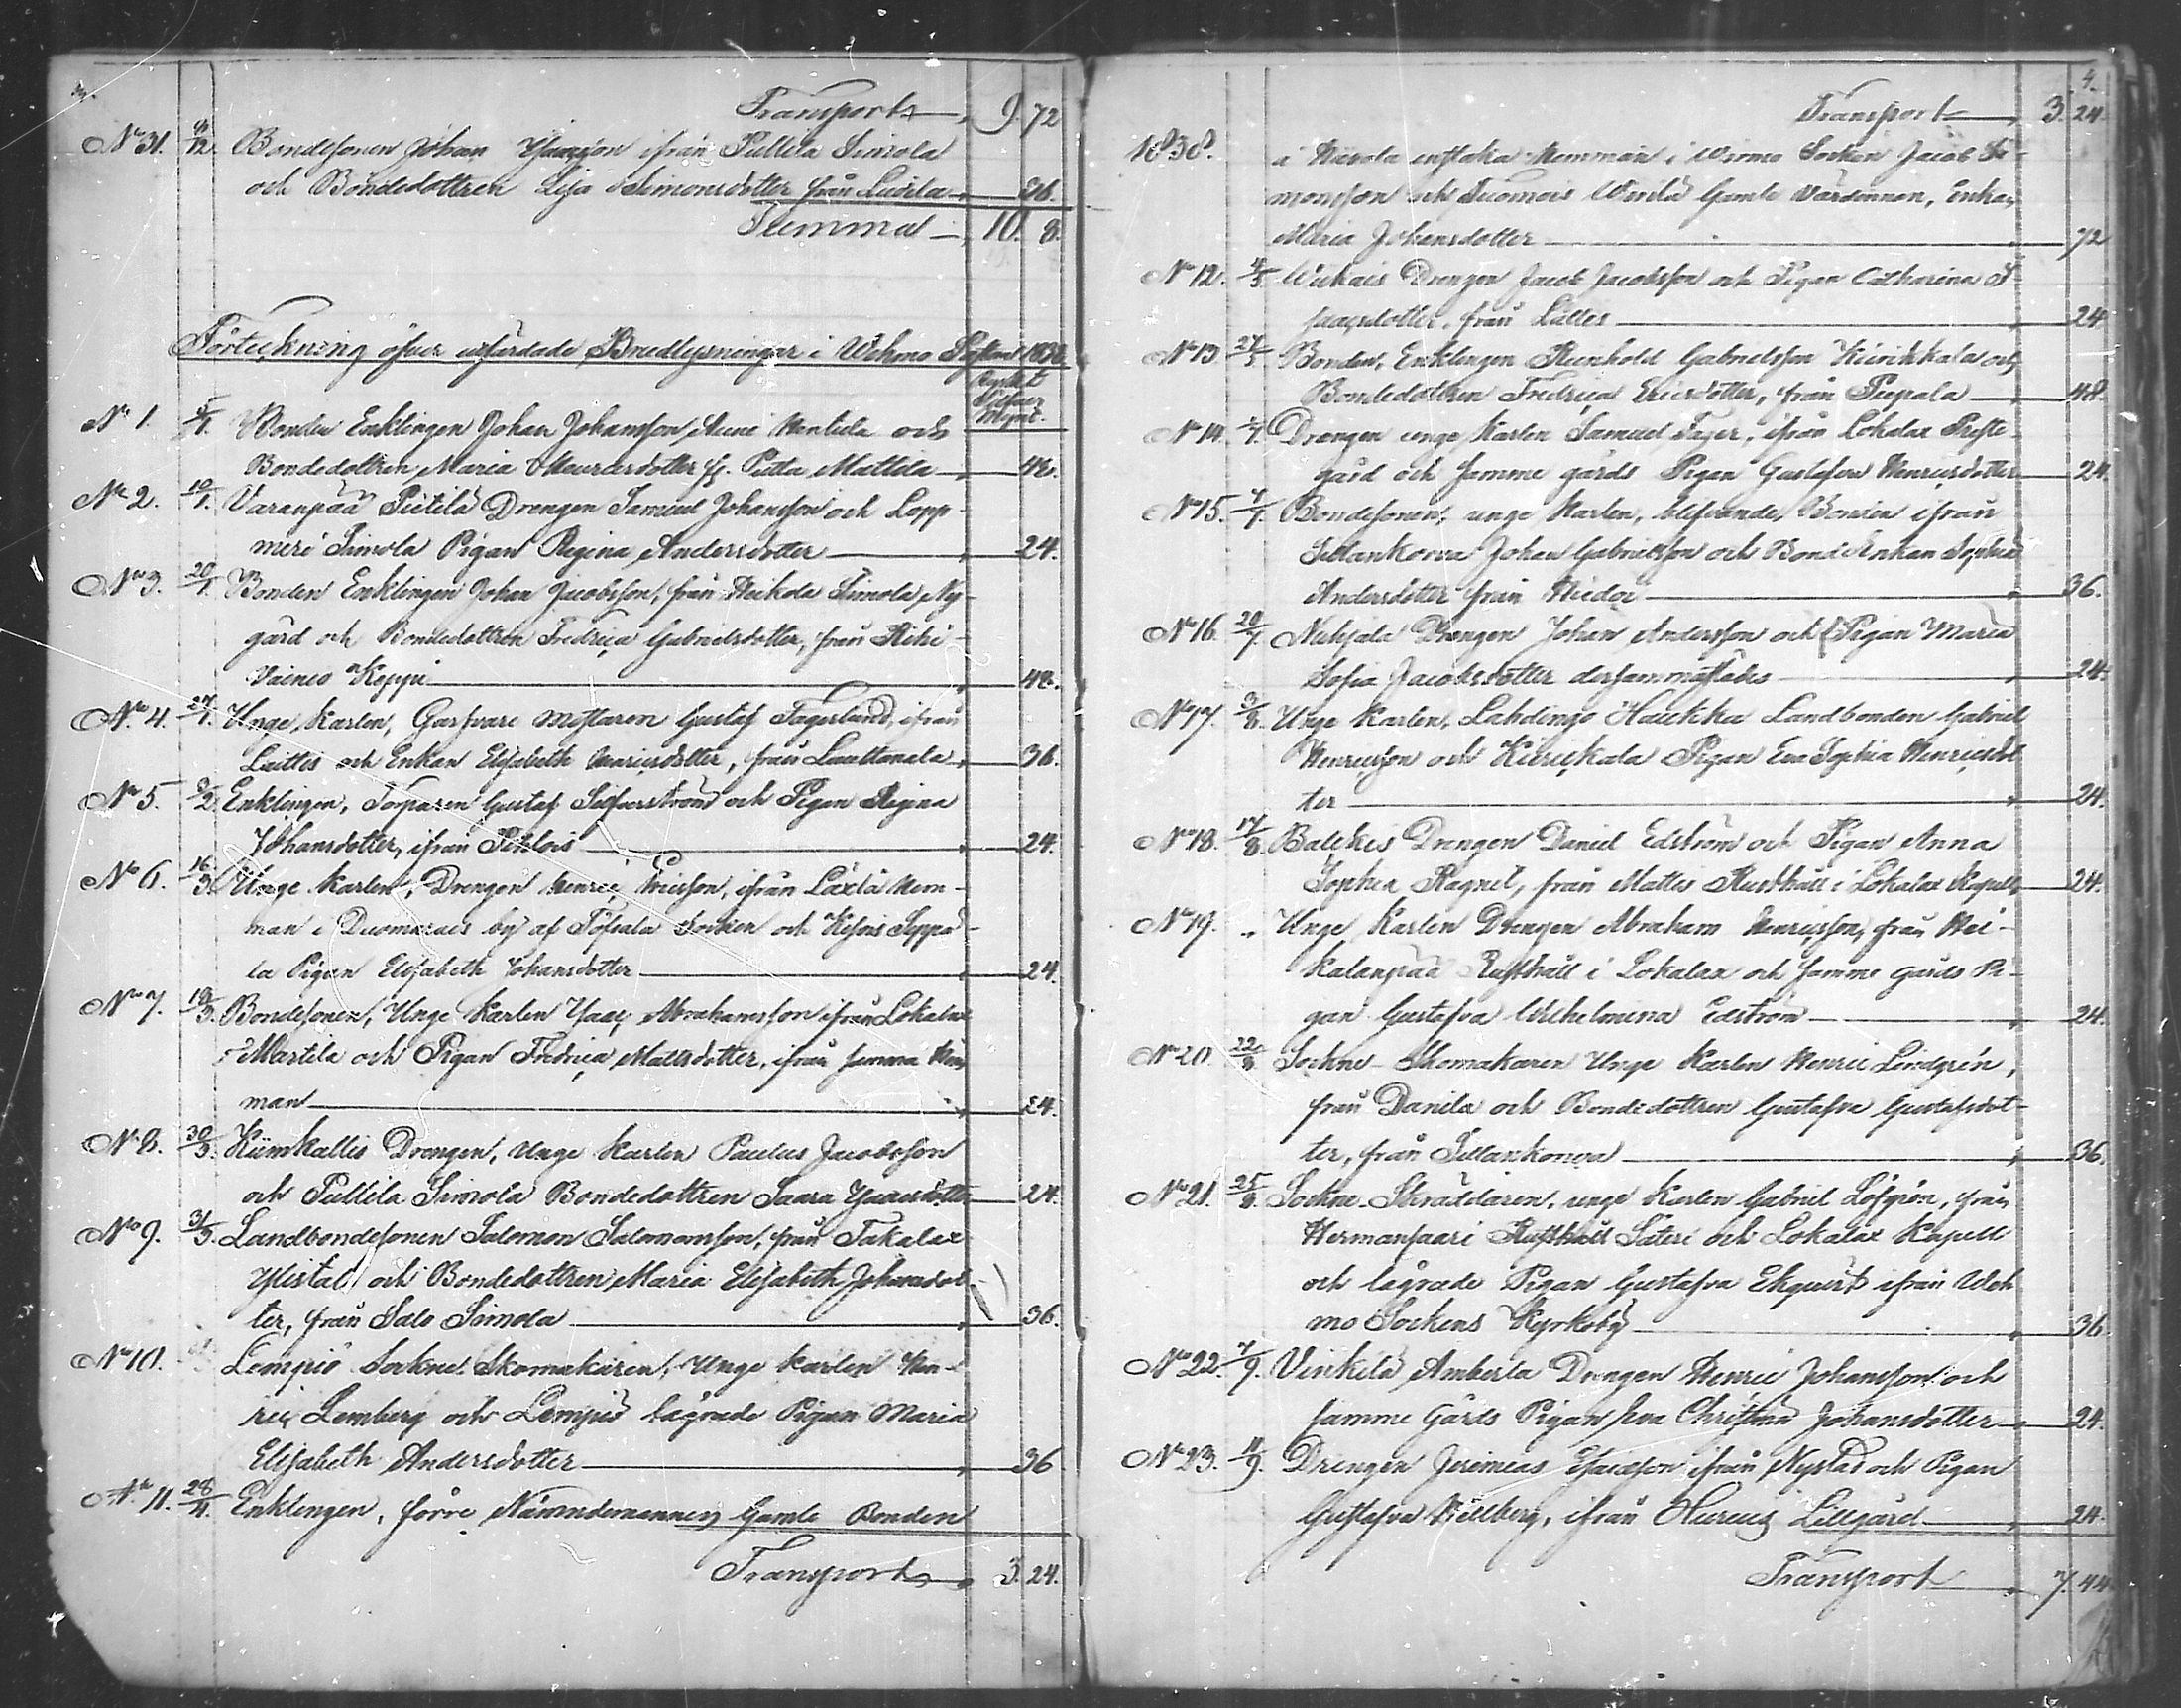 Transport 9. 72
No 31. 9/12. Bondesonen Johan Isaacsson ifrån Pullila Simola
och Bondedottren Lisa Simonsdotter från Luoila 36.
Summa 10. 8.
Förteckning öfver utfärdade Brudlysningar i Wehmo Pastorat 1838.
Ryskt Silfver Mynt.
No 1. 5/1. Bonden Enklingen Johan Johansson Anni Mentula och
Bondedottren Maria Mauritsdotter fr. Putta Mattila 48.
No 2. 10/1. Varanpää Pietilä Drengen Samuel Johansson och Lopp-
meri Simola Pigan Regina Andersdotter 24.
No 3. 20/1. Bonden Enklingen Johan Jacobsson, från Heikola Simola Ny-
gård och Bondedottren Fredrica Gabrielsdotter, från Rihi-
Vainio Keppi 48.
No 4. 27/1. Unge Karlen, Garfvare mästaren Gustaf Fagerlund, ifrån
Laittis och Enkan Elisabeth Henricsdotter, från Lauttamala 36.
No 5. 9/2. Enklingen, Torparen Gustaf Silfverström och Pigan Regina
Johansdotter, ifrån Pehlois 24.
No 6. 16/3. Unge Karlen, Drengen Henric Ericsson, ifrån Laxlä Hem-
man i Duomarais by af Töfsala Socken och Kefois Seppä-
lä Pigan Elisabeth Johansdotter 24.
No 7. 18/3. Bondesonen, Unge Karlen Isaac Abrahamsson ifrån Lokalax
Martila och Pigan Fredrica Mattsdotter, ifrån samma Hem-
man 24.
No 8. 30/3. Kiimkallis Drengen, Unge Karlen Paulus Jacobsson
och Pullila Simola Bondedottren Saara Isaacsdotter 24.
No 9. 31/3. Landbondesonen Salomon Salomonsson, från Takalax
Ylistal och Bondedottren Maria Elisabeth Johansdot-
ter, från Salo Simola 36.
No 10. Lempiö Sockne Skomakaren, Unge Karlen Hen-
ric Lemberg och Lempiö lägrade Pigan Maria
Elisabeth Andersdotter 36
No 11. 28/4. Enklingen, förre Nämndemannen, Gamle Bonden
Transport 3. 24.
4.
Transport 3. 24.
1838. å Hävola enstaka Hemman i Wirmo Socken Jacob Si-
monsson och Tuomois Wirilä Gamle Värdinnan, Enkan
Maria Johansdotter 72
No 12. 4/5. Wiikais Drengen Jacob Jacobsson och Pigan Catharina I-
saacsdotter, från Lälles 24
No 13 27/5. Bonden, Enklingen Reinhold Gabrielsson Kiirikkala och
Bondedottren Fredrica Ericsdotter, från Piepala 48.
No 14. 1/7. Drengen unge Karlen Samuel Fager, ifrån Lokalax Preste-
gård och samme gårds Pigan Gustafva Henricsdotter 24.
No 15. 7/7. Bondesonen, unge Karlen, blifvande Bonden ifrån
Sillankorva Johan Gabrielsson och Bonde Enkan Sophia
Andersdotter från Hiedoi 36.
No 16. 20/7. Nuhjala Drengen Johan Andersson och Pigan Maria
Sofia Jacobsdotter dersammastädes 24.
No 17. 3/8. Unge Karlen, Lahdingo Haukka Landbonden Gabriel
Henricsson och Kiirickala Pigan Eva Sophia Henricsdot-
ter 24.
No 18. 17/8. Balckis Drengen Daniel Edström och Pigan Anna
Sophia Ragnel, från Mattis Rusthåll i Lokalax Kapell 24.
No 19. " Unge Karlen Drengen Abraham Henricsson, från Hai-
kalanpää Rusthåll i Lokalax och samme gårds Pi-
gan Gustafva Wilhelmina Edström 24.
No 20. 22/8. Sockne-Skomakaren Unge Karlen Henric Lindgrén,
från Danila och Bondedottren Gustafva Gustafsdot-
ter, från Sillankorva 36.
No 21. 25/8. Sockne-Skräddaren, unge Karlen Gabriel Löfgrén, från
Hermansaari Rusthåll Säteri och Lokalax Kapell
och lägrade Pigan Gustafva Ekquist ifrån Weh-
mo Sockens Kyrkoby 36
No 22. 7/9. Vinkilä Amberla Drengen Henric Johansson och
samme Gårds Pigan Eva Christina Johansdotter 24.
No 23. 11/9. Drengen Jeremias Isacsson ifrån Nystad och Pigan
Gustafva Killberg, ifrån Hurcus Lillgård 24.
Transport 7. 44